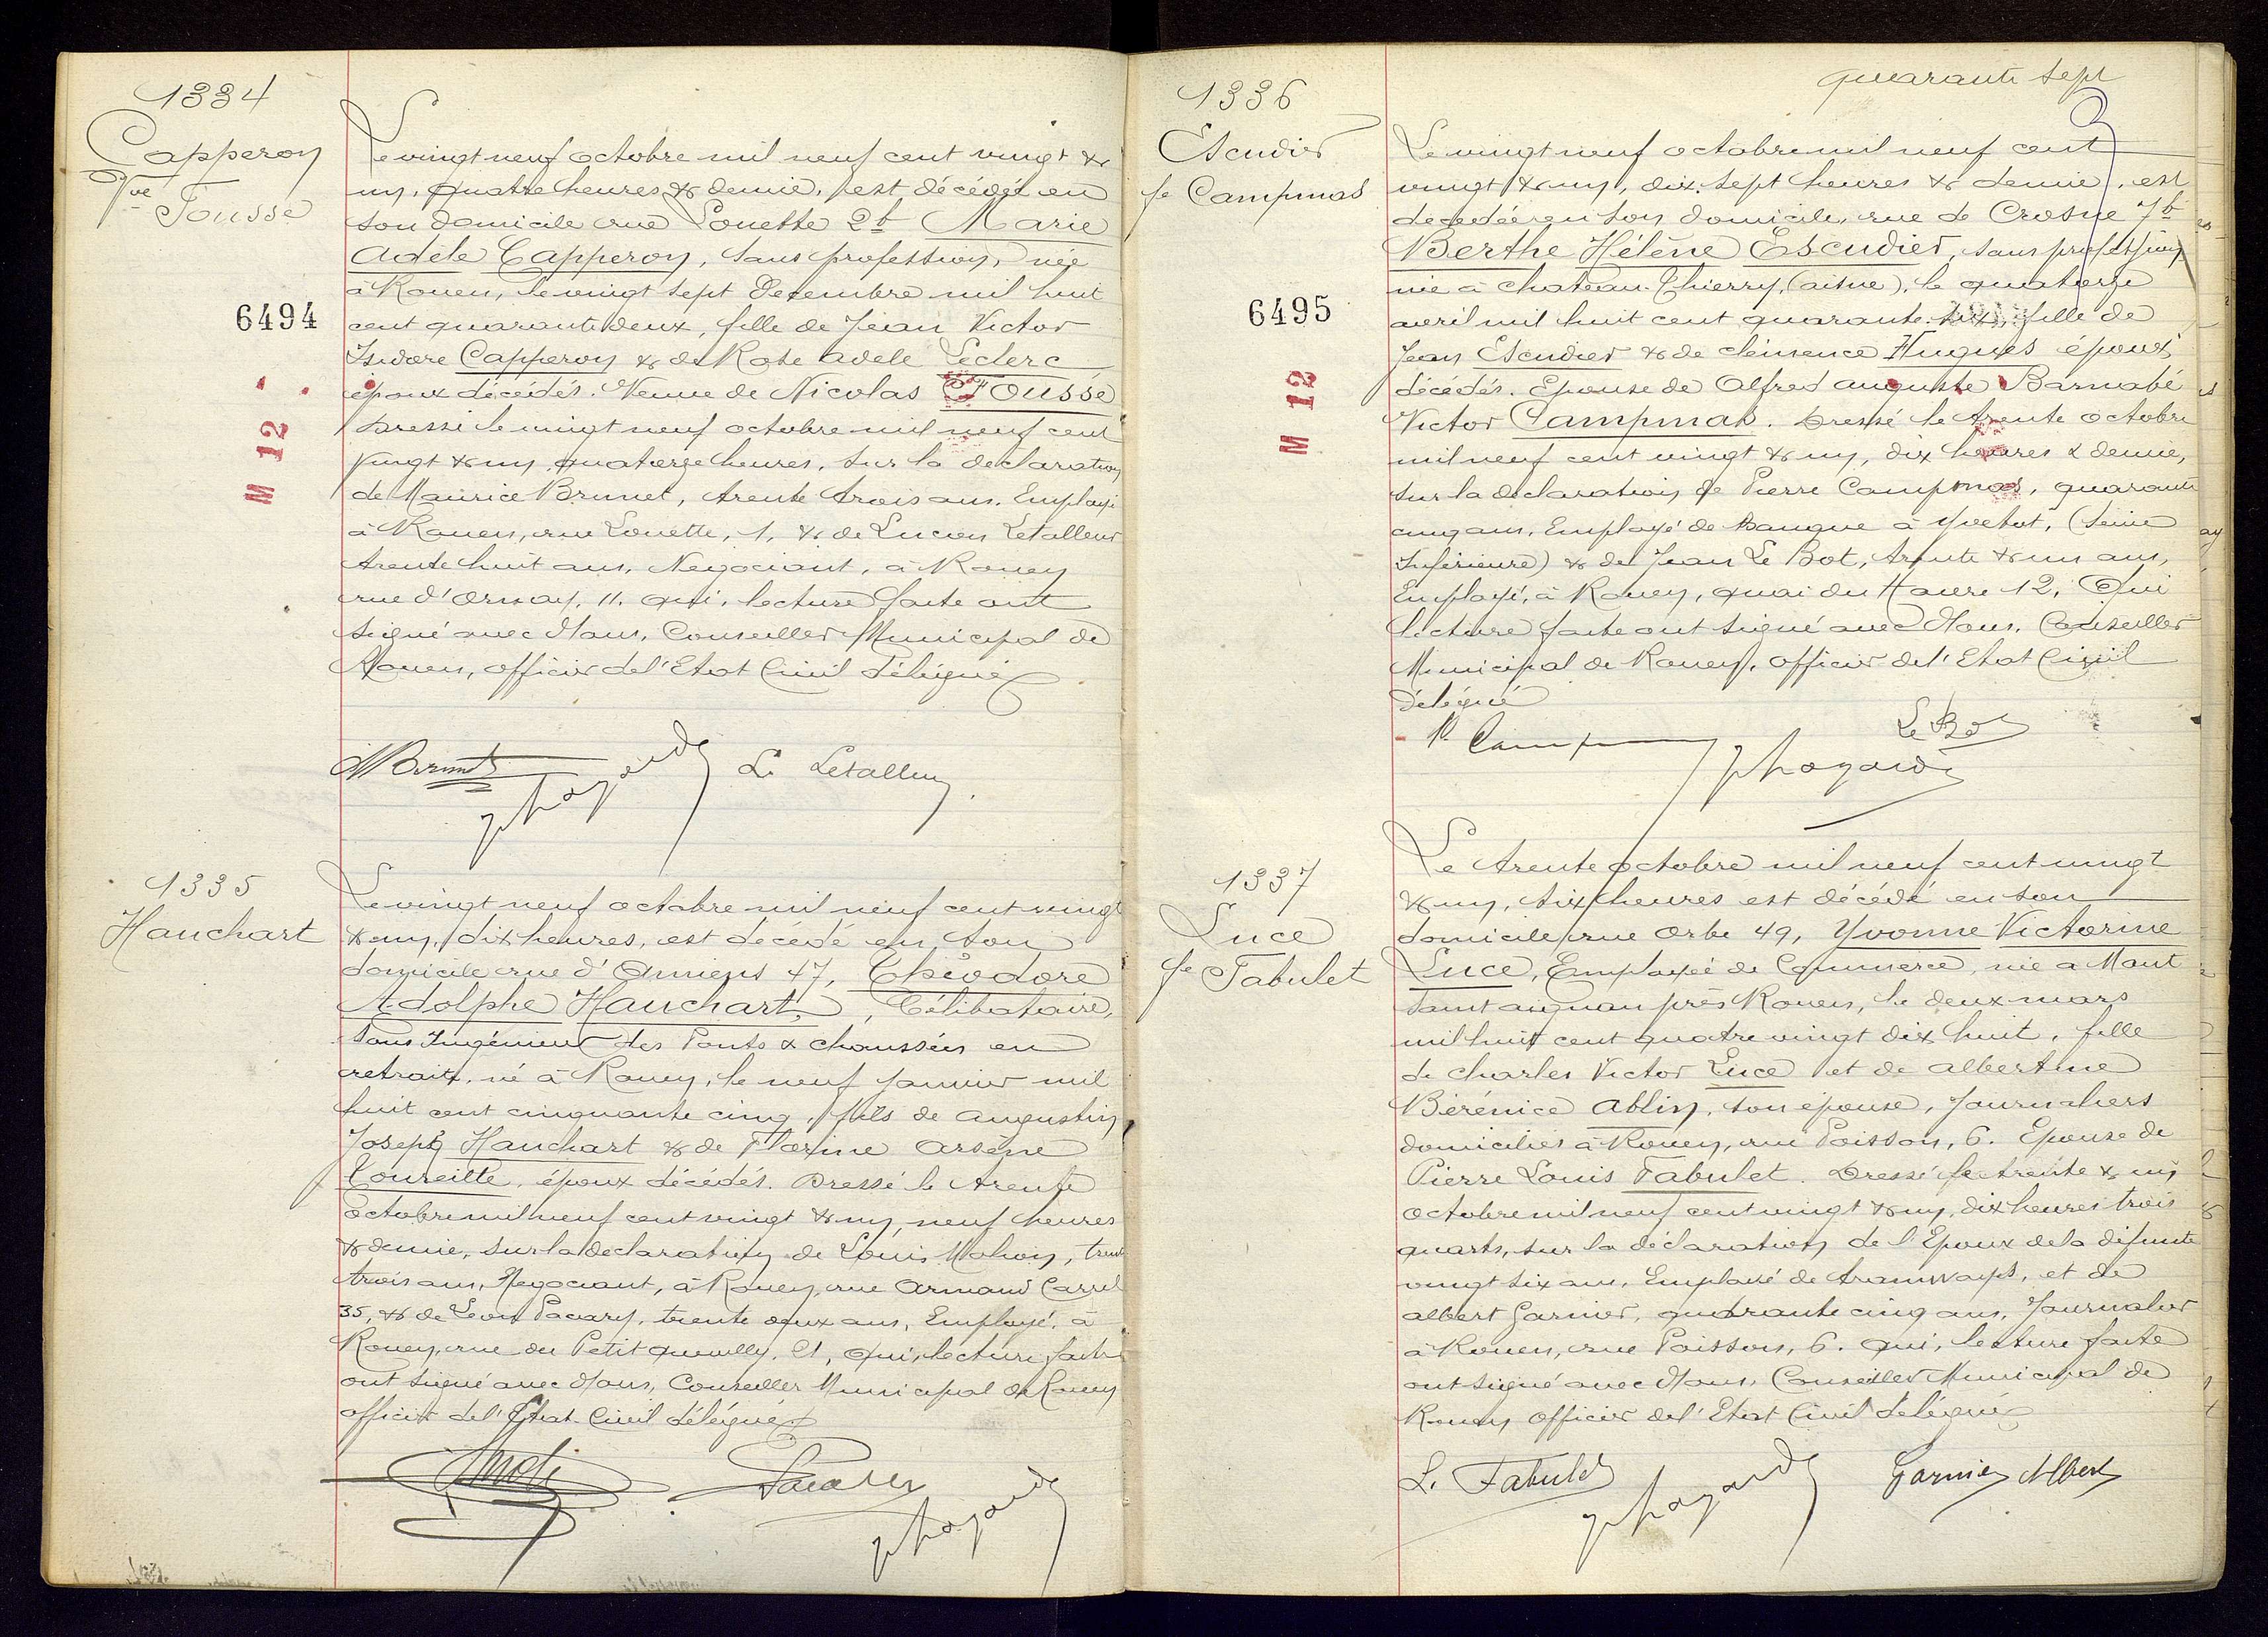 1334
Capperon
Vve Fousse
6494
M 12
Le vingt neuf octobre mil neuf cent vingt &
un, quatre heures & demie, est décédée en
son domicile rue Louette 2b Marie
Adèle Capperon, sans profession, née
à Rouen, le vingt sept Décembre mil huit
cent quarante deux, fille de Jean Victor
Isidore Capperon & de Rose Adèle Leclerc
époux décédés. Veuve de Nicolas Fousse
Dressé le vingt neuf octobre mil neuf cent
vingt & un, quatorze heures, sur la déclaration
de Maurice Brunet, trente trois ans, Employé
à Rouen, rue Louette, 1, & de Lucien Letalleur
trente huit ans, Négociant, à Rouen
rue d'Ornay, 11. Qui, lecture faite ont
signé avec Nous, Conseiller Municipal de
Rouen, officier de l'Etat Civil délégué
MBrunet L. Letalleur
1335
Hauchart
Le vingt neuf octobre mil neuf cent vingt
& un, dix heures, est décédé en son
domicile rue d'Amiens 47, Théodore
Adolphe Hauchart, Célibataire,
Sous Ingénieur des Ponts & chaussées en
retraite, né à Rouen, le neuf Janvier mil
huit cent cinquante cinq, fils de Augustin
Joseph Hauchart & de Florine Arsène
Toureille, époux décédés. Dressé le trente
octobre mil neuf cent vingt & un, neuf heures
& demie, sur la déclaration de Louis Mahon, trente
trois ans, Négociant, à Rouen, rue Armand Carrel
35, & de Léon Pacary, trente deux ans, Employé, à
Rouen, rue du Petit Quevilly, 21, Qui, lecture faite
ont signé avec Nous, Conseiller Municipal de Rouen
officier de l'Etat Civil délégué
quarante sept
1336
Escudier
fe Campmas
6495
M 12
Le vingt neuf octobre mil neuf cent
vingt & un, dix sept heures & demie, est
décédée en son domicile, rue de Crosne 7b
Berthe Hélène Escudier, sans profession
née à Chateau-Thierry, (Aisne), le quatorze
avril mil huit cent quarante, fille de
Jean Escudier & de Clémence Hugues époux
décédés. Epouse de Alfred Auguste Barnabé
Victor Campmas. Dressé le trente octobre
mil neuf cent vingt & un, dix heures & demie,
sur la déclaration de Pierre Campmas, quarante
cinq ans, Employé de Banque à Yvetot, (Seine
Inférieure) & de Jean Le Bot, trente & un ans,
Employé, à Rouen, quai du Havre 12, Qui
lecture faite ont signé avec Nous, Conseiller
Municipal de Rouen, officier de l'Etat Civil
délégué
P. Camp Le Bot
1337
Luce
fe Tabulet
Le trente octobre mil neuf cent vingt
& un, six heures est décédé en son
domicile rue Orbe 49, Yvonne Victorine
Luce, Employée de Commerce, née à Mont
Saint Aignan près Rouen, le deux mars
mil huit cent quatre vingt dix huit, fille
de Charles Victor Luce et de Albertine
Bérénice Ablin, son épouse, Journaliers
domiciliés à Rouen, rue Poisson, 6. Epouse de
Pierre Louis Tabulet. Dressé le trente & un
octobre mil neuf cent vingt & un, dix heures trois
quarts, sur la déclaration de l'Epoux de la défunte
vingt six ans, Employé de tramways, et de
Albert Garnier, quarante cinq ans, Journalier
à Rouen, rue Poisson, 6. Qui, lecture faite
ont signé avec Nous, Conseiller Municipal de
Rouen officier de l'Etat Civil délégué
L. Tabulet Garnier Albert